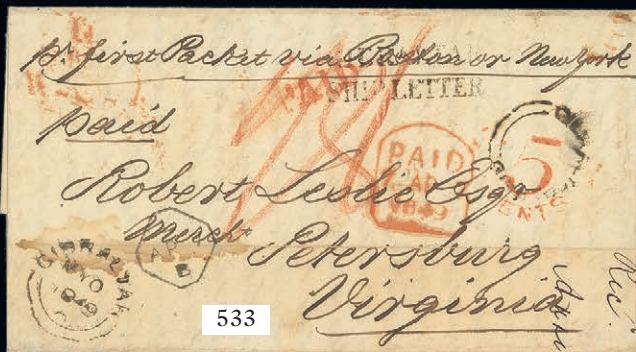 pr first Packet via Boston or New York
PAID
SHIP LETTER
paid
PAID
1849
5
CENTS
Robert Leslie Esqr
Mercht
Petersburg
Virginia
GIBRALTAR
1849
B
533